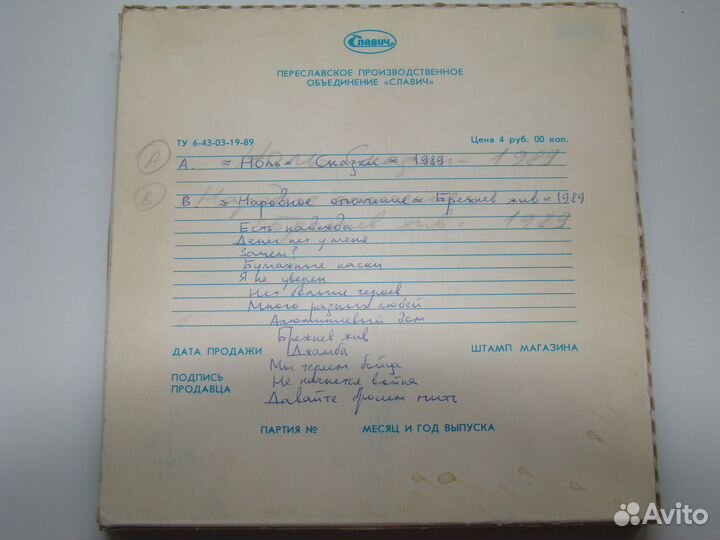 Славич
ПЕРЕСЛАВСКОЕ ПРОИЗВОДСТВЕННОЕ
ОБЪЕДИНЕНИЕ «СЛАВИЧ»
ТУ 6-43-03-19-89
Цена 4 руб. 00 коп.
А
А. ≈ Ноль = Сказки = 1989
В
В. ≈ Народное ополчение = Брежнев жив = 1989
Есть надежда
Денег нет у меня
Зачем?
Бумажные каски
Я не уверен
Нет больше героев
Много разных людей
Алюминиевый дом
Брежнев жив
ДАТА ПРОДАЖИ Джамба ШТАМП МАГАЗИНА
Мы теряем бойца
ПОДПИСЬ
ПРОДАВЦА
Не начнется война
Давайте бросим пить
ПАРТИЯ № МЕСЯЦ И ГОД ВЫПУСКА
Avito